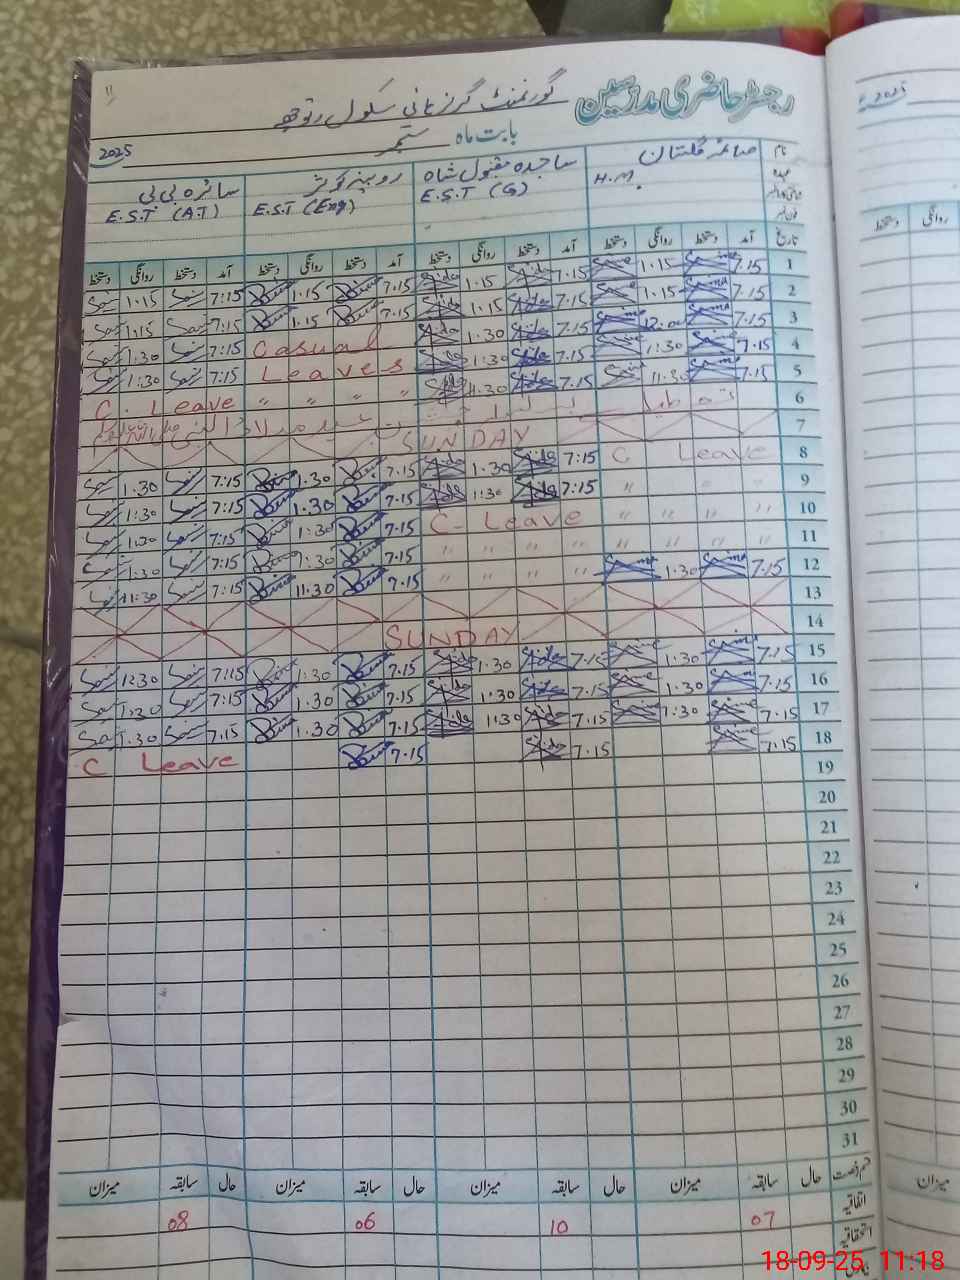 رجسٹر حاضری مدرسین گورنمنٹ گرلز ہائی سکول
بابت ماہ ستمبر 2025
نام صائمہ گلستان ساجدہ مقبول شاہ روبینہ کوثر سائرہ بی بی
عہدہ H.M. E.S.T (G) E.S.T (Eng) E.S.T (A.T)
تاریخ آمد دستخط روانگی دستخط آمد دستخط روانگی دستخط آمد دستخط روانگی دستخط آمد دستخط روانگی دستخط
1 7.15 1.15 7.15 1.15 7.15 1.15 7:15 1.15
2 7.15 1.15 7.15 1.15 7.15 1.15 7:15 1.15
3 7.15 12:00 7.15 1:30 Casual 7:15 1:30
4 7.15 1:30 7.15 1:30 Leaves 7:15 1:30
5 7.15 11:30 7.15 11.30 " " " " C. Leave
6 تعطیل عید میلاد النبی
7 SUNDAY
8 C Leave 7:15 1.30 7.15 1.30 7:15 1.30
9 " " " 7:15 1:30 7.15 1.30 7:15 1:30
10 " " " " C- Leave 7.15 1:30 7:15 1:30
11 " " " " " " " " 7.15 1:30 7:15 1:30
12 7.15 1:30 " " " " 7.15 11.30 7:15 11:30
13
14 SUNDAY
15 7.15 1:30 7.15 1:30 7.15 1:30 7:15 12:30
16 7.15 1:30 7.15 1:30 7.15 1:30 7:15 1:30
17 7.15 1:30 7.15 1:30 7.15 1.30 7.15 1.30
18 7.15 7.15 7.15 C Leave
19
20
21
22
23
24
25
26
27
28
29
30
31
قسم رخصت حال سابقہ میزان حال سابقہ میزان حال سابقہ میزان حال سابقہ میزان
اتفاقیہ 07 10 06 08
استحقاقیہ
18-09-25 11:18
2025
روانگی دستخط
میزان